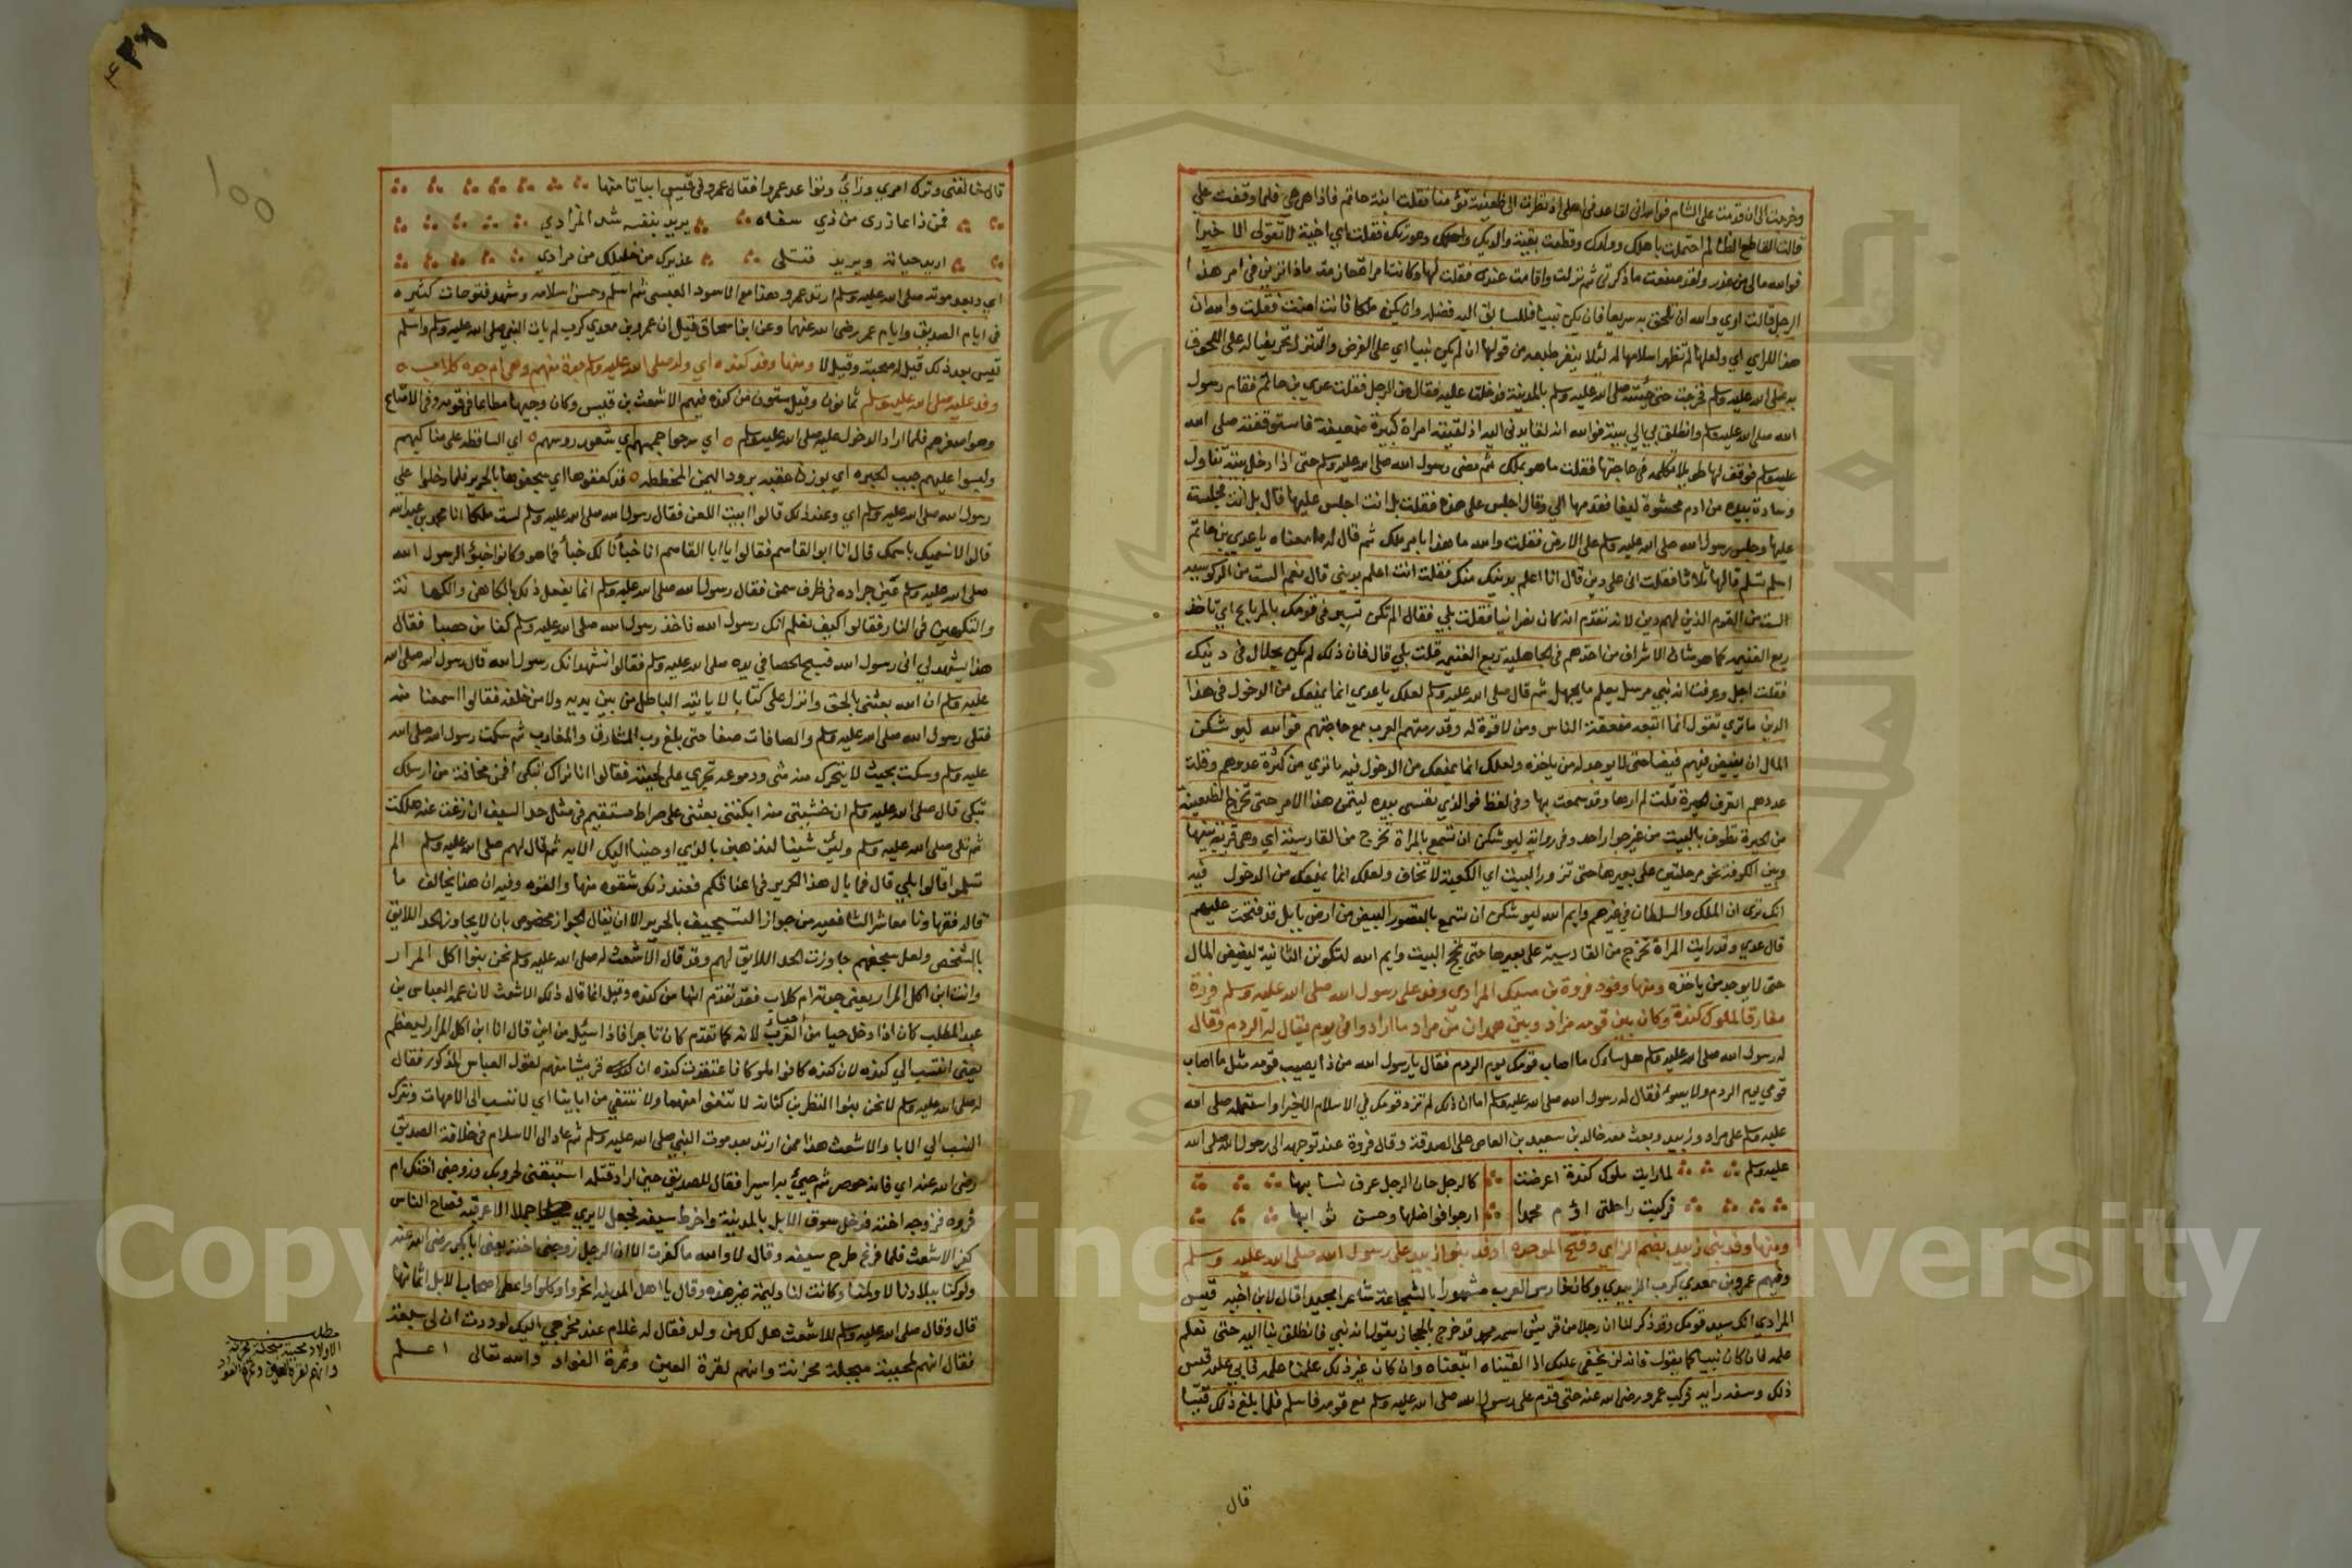 وخرجت الى ان قدمت على الشام فوالله اني لقاعد في اهلي اذ نظرت الى ظعينة تؤمنا فقلت ابنة حاتم فاذا هي هي فلما وقفت علي
قالت القاطع الظالم احتملت باهلك وولدك وقطعت بقية والديك واهلك وعورتك فقلت اي اخية لا تقولي الا خيرا
فوالله مالي من عذر ولقد صنعت ما ذكرتي ثم نزلت واقامت عندي فقلت لها وكانت امراة حازمة ماذا ترين في امر هذا
الرجل قالت اري والله ان تلحق به سريعا فان يكن نبيا فللسابق اليه فضله وان يكن ملكا فانت انت فقلت والله ان
هذا للراي اي ولعلها لم تظهر اسلامها له لئلا ينفر طبعه من قولها ان لم يكن نبيا اي على الفرض والتنزل تحريضا له على اللحوق
به صلى الله عليه وسلم فخرجت حتى جئته صلى الله عليه وسلم بالمدينة فدخلت عليه فقال من الرجل فقلت عدي بن حاتم فقام رسول
الله صلى الله عليه وسلم وانطلق بي الي بيته فوالله انه لقايد بي اليه اذ لقيته امراة كبيرة ضعيفة فاستوقفته صلى الله
عليه وسلم فوقف لها طويلا تكلمه في حاجتها فقلت ما هو بملك ثم مضى رسول الله صلى الله عليه وسلم حتى اذا دخل بيته تناول
وسادة بيده من ادم محشوة ليفا فقدمها الي وقال اجلس على هذه فقلت بل انت اجلس عليها قال بل انت فجلست
عليها وجلس رسول الله صلى الله عليه وسلم على الارض فقلت والله ما هذا بامر ملك ثم قال له ما معناه يا عدي بن حاتم
اسلم تسلم قالها ثلاثا فقلت اني على دين قال انا اعلم بدينك منك فقلت انت اعلم بديني قال نعم الست من الركوسية
الست من القوم الذين لهم دين لانه تقدم انه كان نصرانيا فقلت بلي فقال الم تكن تسير في قومك بالمرباع اي تاخذ
ربع الغنيمة كما هو شان الاشراف من اخذهم في الجاهلية ربع الغنيمة قلت بلي قال فان ذلك لم يكن يحل لك في دينك
فقلت اجل وعرفت انه نبي مرسل يعلم ما يجهل ثم قال صلى الله عليه وسلم لعلك يا عدي انما يمنعك من الدخول في هذا
الدين ما تري تقول انما اتبعه ضعفة الناس ومن لا قوة له وقد رمتهم العرب مع حاجتهم فوالله ليوشكن
المال ان يفيض فيهم فيضا حتى لا يوجد له من ياخذه ولعلك انما يمنعك من الدخول فيه ما تري من كثرة عدوهم وقلة
عددهم اتعرف الحيرة قلت لم ارها وقد سمعت بها وفي لفظ فوالذي نفسي بيده ليتمن هذا الامر حتى تخرج الظعينة
من الحيرة تطوف بالبيت من غير جوار احد وفي رواية ليوشكن ان تسمع بالمراة تخرج من القادسية اي وهي قرية بينها
وبين الكوفة نحو مرحلتين على بعيرها حتى تزور البيت اي الكعبة لا تخاف ولعلك انما يمنعك من الدخول فيه
انك تري ان الملك والسلطان في غيرهم وايم الله ليوشكن ان تسمع بالقصور البيض من ارض بابل قد فتحت عليهم
قال عدي وقد رايت المراة تخرج من القادسية على بعيرها حتى تحج البيت وايم الله لتكونن الثانية ليفيض المال
حتى لا يوجد من ياخذه ومنها وفود فروة بن مسيك المرادي وفد على رسول الله صلى الله عليه وسلم فروة
مفارقا لملوك كندة وكان بين قومه مراد وبين همدان من مراد ما ارادوا في يوم يقال له الردم وقال
له رسول الله صلى الله عليه وسلم هل ساءك ما اصاب قومك يوم الردم فقال يا رسول الله من ذا يصيب قومه مثل ما اصاب
قومي يوم الردم ولا يسوءه فقال له رسول الله صلى الله عليه وسلم اما ان ذلك لم تزد قومك في الاسلام الا خيرا واستعمله صلى الله
عليه وسلم على مراد وزبيد وبعث معه خالد بن سعيد بن العاص على الصدقة وقال فروة عند توجهه الى رسول الله صلى الله
عليه وسلم لما رايت ملوك كندة اعرضت كالرجل خان الرجل عرق نسايها
فركبت راحلتي اؤم محمدا ارجوا فواضلها وحسن ثوابها
ومنها وفد بني زبيد بضم الزاي وفتح الموحدة وفد بنوا زبيد على رسول الله صلى الله عليه وسلم
وفيهم عمرو بن معدي كرب الزبيدي وكان فارس العرب مشهورا بالشجاعة شاعرا مجيدا قال لابن اخيه قيس
المرادي انك سيد قومك وقد ذكر لنا ان رجلا من قريش اسمه محمد قد خرج بالحجاز يقول انه نبي فانطلق بنا اليه حتى نعلم
علمه فان كان نبيا كما يقول فانه لن يخفى عليك اذا لقيناه اتبعناه وان كان غير ذلك علمنا علمه فابي عليه قيس
ذلك وسفه رايه فركب عمرو رضي الله عنه حتى قدم على رسول الله صلى الله عليه وسلم مع قومه فاسلم فلما بلغ ذلك قيسا
قال
قال خالفني وترك امري ورايي وتواعد عمروا فقال عمرو في قيس ابياتا منها
فمن ذا عاذري من ذي سفاه يريد بنفسه شد المرادي
اريد حياته ويريد قتلي عذيرك من خليلك من مرادي
اي وبعد موته صلى الله عليه وسلم ارتد عمرو هذا مع الاسود العنسي ثم اسلم وحسن اسلامه وشهد فتوحات كثيره
في ايام الصديق وايام عمر رضي الله عنهما وعن ابن اسحاق قيل ان عمرو بن معدي كرب لم يات النبي صلى الله عليه وسلم واسلم
قيس بعد ذلك قيل له صحبة وقيل لا ومنها وفد كنده اي ولد صلى الله عليه وسلم جدة منهم وهي ام جده كلاب
وفد عليه صلى الله عليه وسلم ثمانون وقيل ستون من كنده فيهم الاشعث بن قيس وكان وجيها مطاعا في قومه وفي الامتاع
وهو اصغرهم فلما ارادوا الدخول عليه صلى الله عليه وسلم اي سرحوا جممهم اي شعور روسهم اي الساقطة على مناكبهم
ولبسوا عليهم جبب الحبره اي بوزن عنبه برود اليمن المخططه قد كففوها اي سجفوها بالحرير فلما دخلوا على
رسول الله صلى الله عليه وسلم اي وعند ذلك قالوا ابيت اللعن فقال رسول الله صلى الله عليه وسلم لست ملكا انا محمد بن عبد الله
قالوا لا نسميك باسمك قال انا ابو القاسم فقالوا يا ابا القاسم انا خبأنا لك خبأ فما هو وكانوا خبؤا لرسول الله
صلى الله عليه وسلم عين جراده في ظرف سمن فقال رسول الله صلى الله عليه وسلم انما يفعل ذلك بالكاهن والكهانة
والتكهن في النار فقالوا كيف نعلم انك رسول الله فاخذ رسول الله صلى الله عليه وسلم كفا من حصبا فقال
هذا يشهد لي اني رسول الله فسبح الحصا في يده صلى الله عليه وسلم فقالوا نشهد انك رسول الله قال رسول الله صلى الله
عليه وسلم ان الله بعثني بالحق وانزل علي كتابا لا ياتيه الباطل من بين يديه ولا من خلفه فقالوا اسمعنا منه
فتلى رسول الله صلى الله عليه وسلم والصافات صفا حتى بلغ ورب المشارق والمغارب ثم سكت رسول الله صلى الله
عليه وسلم وسكت بحيث لا يتحرك منه شى ودموعه تجري على لحيته فقالوا انا نراك تبكي افمن مخافة من ارسلك
تبكي قال صلى الله عليه وسلم ان خشيتي منه ابكتني بعثني على صراط مستقيم في مثل حد السيف ان زغت عنه هلكت
ثم تلى صلى الله عليه وسلم ولئن شينا لنذهبن بالذي اوحينا اليك الايه ثم قال لهم صلى الله عليه وسلم الم
تسلموا قالوا بلي قال فما بال هذا الحرير في اعناقكم فعند ذلك شقوه منها والقوه وفيه ان هذا يخالف ما
قاله فقهاونا معاشر الشافعيه من جواز التسجيف بالحرير الا ان يقال الجواز مخصوص بان لا يجاوز الحد اللائق
بالشخص ولعل سجفهم جاوزت الحد اللائق لهم وقد قال الاشعث له صلى الله عليه وسلم نحن بنوا اكل المرار
وانت ابن اكل المرار يعني جدته ام كلاب فقد تقدم انها من كنده وقيل انما قال ذلك الاشعث لان عمه العباس بن
عبد المطلب كان اذا دخل حيا من احياء العرب لانه كما تقدم كان تاجرا فاذا سئيل من اين قال انا ابن اكل المرار ليعظم
يعني انتسب الي كنده لان كنده كانوا ملوكا فاعتقدت كنده ان قريشا منهم لقول العباس المذكور فقال
له صلى الله عليه وسلم لا نحن بنوا النضر بن كنانه لا نقفوا امنا ولا ننتفي من ابائنا اي لا ننتسب الى الامهات ونترك
النسب الي الابا والاشعث هذا ممن ارتد بعد موت النبي صلى الله عليه وسلم ثم عاد الى الاسلام في خلافة الصديق
رضي الله عنه اي فانه حوصر ثم جيئ به اسيرا فقال للصديق حين اراد قتله استبقني لحروبك وزوجني اختك ام
فروه فزوجه اخته فدخل سوق الابل بالمدينة واخترط سيفه فجعل لا يري جملا الا عرقبه فصاح الناس
كفر الاشعث فلما فرغ طرح سيفه وقال لا والله ما كفرت الا ان الرجل زوجني اخته يعني ابا بكر رضي الله عنه
ولو كنا ببلادنا لاولمنا وكانت لنا وليمة غير هذه وقال يا اهل المدينه انحروا وكلوا واعطى اصحاب الابل اثمانها
قال وقال صلى الله عليه وسلم للاشعث هل لك من ولد فقال له غلام عند مخرجي اليك لوددت ان لي سبعة
فقال انهم لمجبنة مبخلة محزنة وانهم لقرة العين وثمرة الفواد والله تعالى اعلم
مطلب
الاولاد مجبنة مبخلة محزنة
وانهم لقرة العين وثمرة الفواد
١٥٥
Copyright © King Saud University